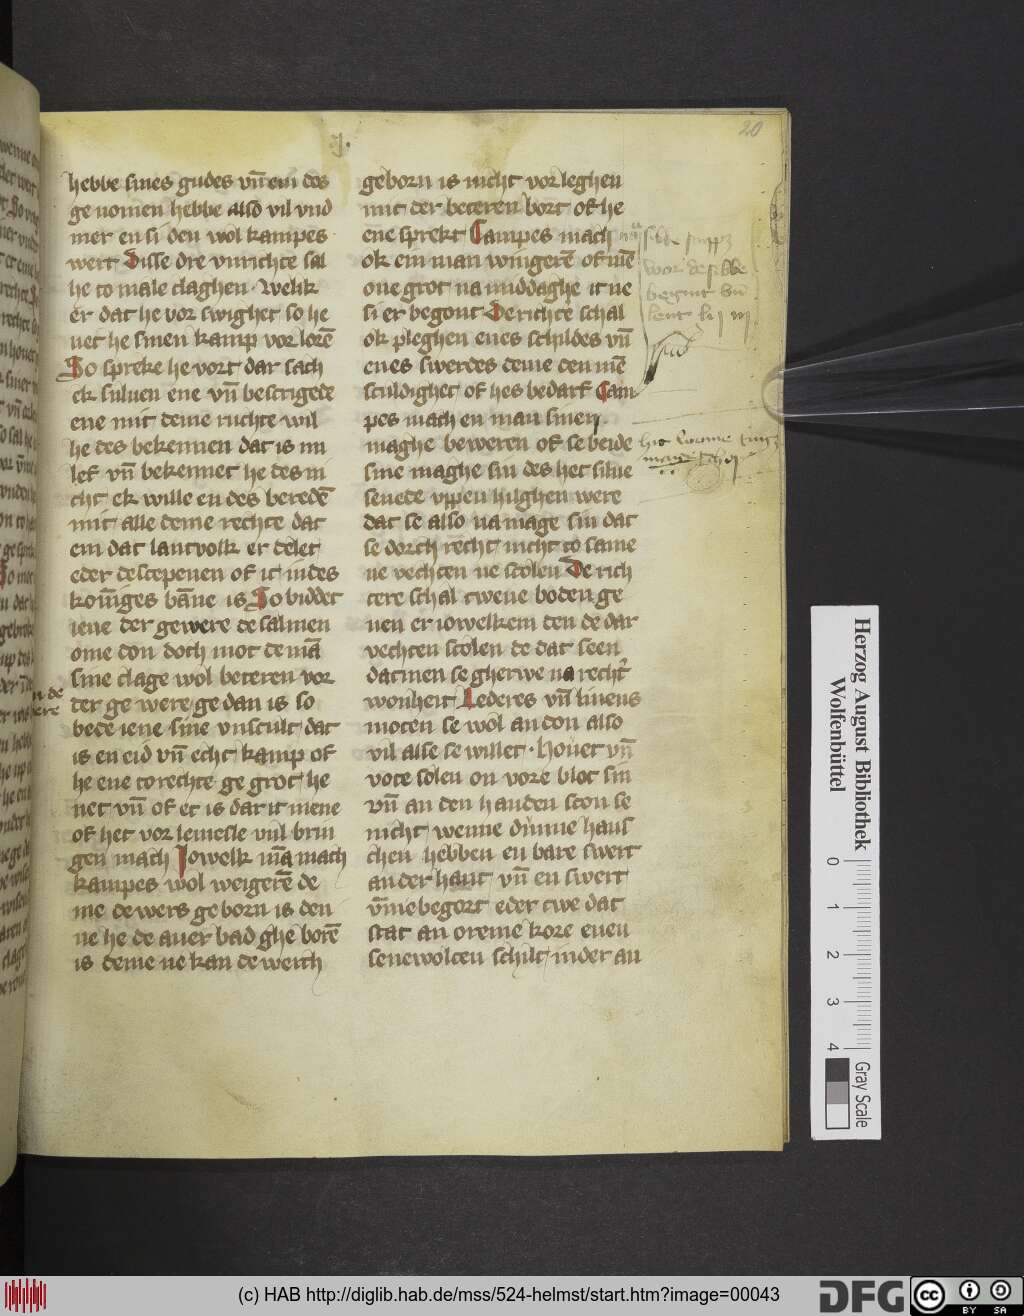 20
J.
hebbe sines gudes vn̄ em des
ge nomen hebbe also vil vnd
mer en si den wol kampes
wert Disse dre vnrichte sal
he to male claghen · Welik
er dat he vor swighet so he
uet he sinen kamp vor lorē
So spreke he vort dar sach
ek suluen ene vn̄ bescrigede
ene mit deme ruchte wil
he des bekennen dat is mi
lef vn̄ bekennet he des ni
cht ek wille en des beredē
mit alle deme rechte dat
em dat lantvolk er delet
eder de scepenen of it in des
koni̅ges bāne is So biddet
iene der gewere de sal men
ome don doch mot de mā
sine clage wol beteren vor
der ge were ge dan is so
bede iene sine vnscult dat
is en eid vn̄ echt kamp of
he ene to rechte ge grot he
uet vn̄ of et is dar it mene
of het vor lemesle vul brin
gen mach Jowelk mā mach
kampes wol weigerē de
me de wers geborn is den
ne he de auer bad ghe borē
is deme ne kan de werch
geborn is nicht vorleghen
mit der beteren bort of he
ene sprekt Campes mach
ok ein man wingerē of mē
one grot na middaghe it ne
si er begont De richte schal
ok pleghen enes schildes vn̄
enes swerdes deme den mē
sculdighet of hes bedarf Cam
pes mach en man sinen
maghe beweren of se beide
sine maghe sin des het silue
seuede vppen hilghen were
dat se also na mage sin dat
se dorch recht nicht to same
ne vechten ne scolen De rich
tere schal twene boden ge
uen er iowelkem den de dar
vechten scolen de dat seen
dat men se gherwe na recht'
wonheit Lederes vn̄ linens
moten se wol an don also
vil alse se willet · Houet vn̄
vote solen on vore blot sin
vn̄ an den handen scon se
nicht wenne dunne hans
chen hebben en bare swert
an der hant vn̄ en swert
v̄me begort eder twe dat
stat an oreme kore enen
senewolten schilt in der an
Herzog August Bibliothek
Wolfenbüttel
0 1 2 3 4
Gray Scale
(c) HAB http://diglib.hab.de/mss/524-helmst/start.htm?image=00043
DFG
cc BY SA